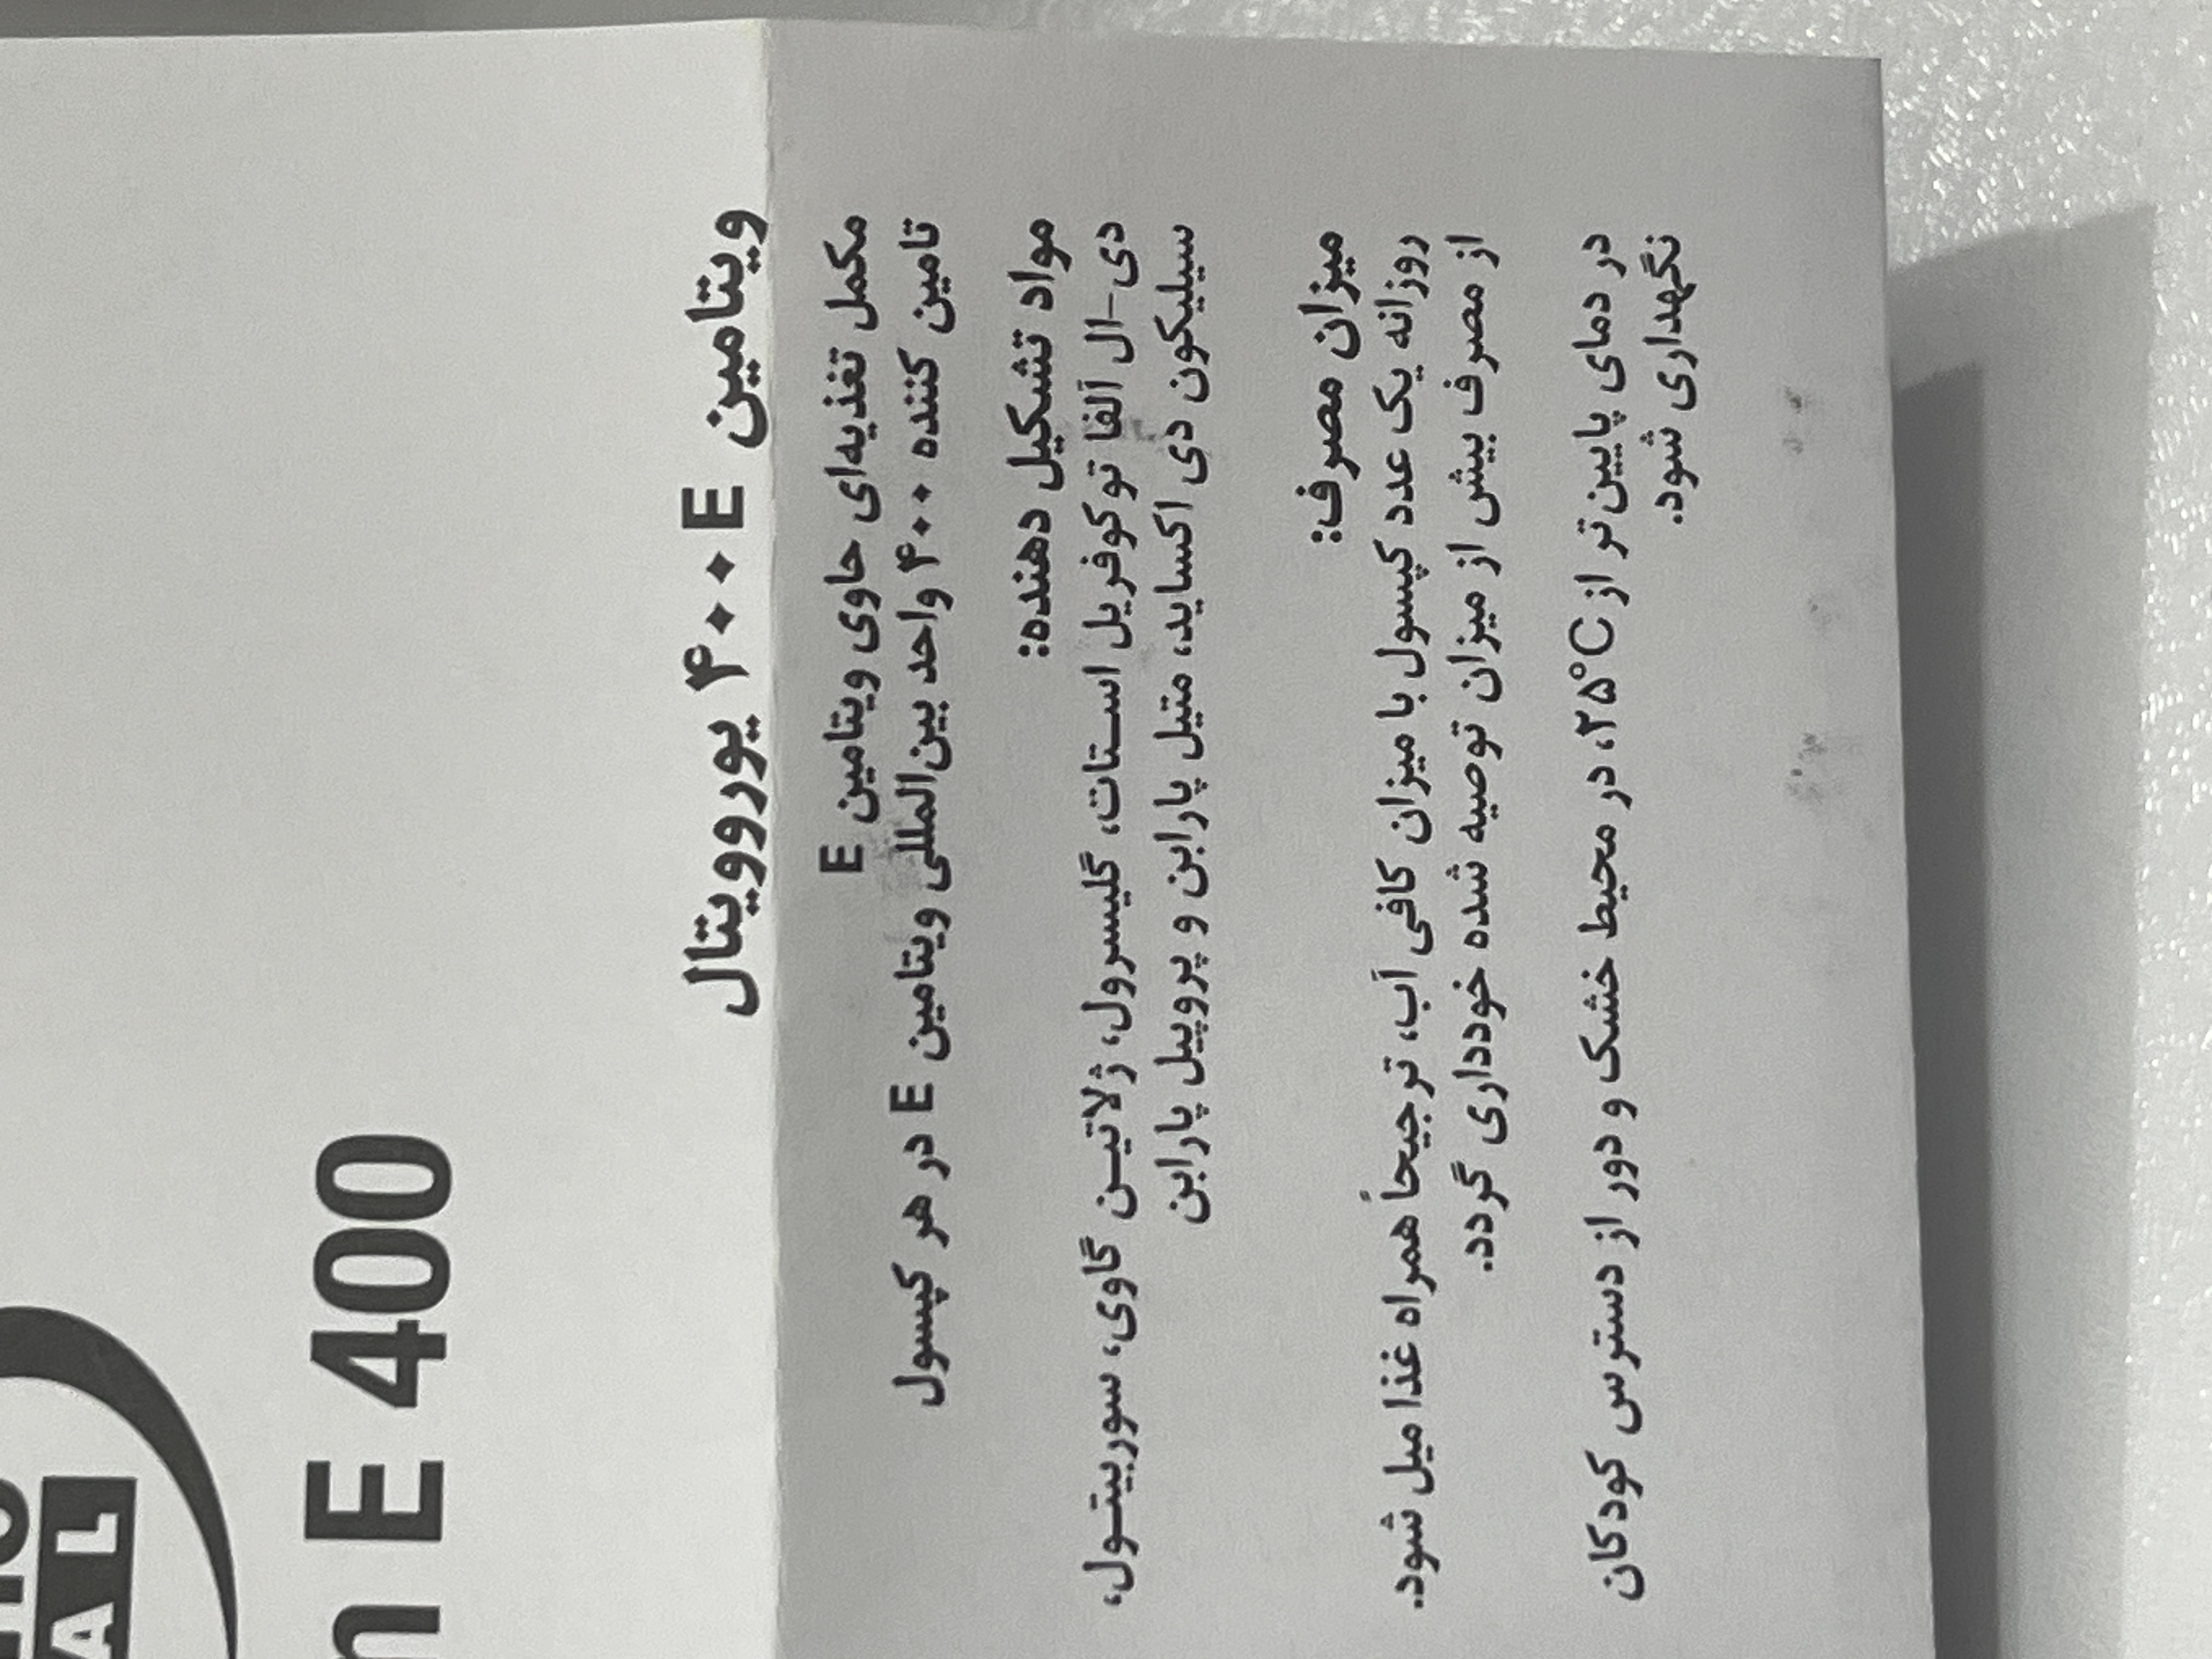 ویتامین E ۴۰۰ یوروویتال
مکمل تغذیه‌ای حاوی ویتامین E
تامین کننده ۴۰۰ واحد بین‌المللی ویتامین E در هر کپسول
مواد تشکیل دهنده:
دی-ال آلفا توکوفریل استات، گلیسرول، ژلاتین گاوی، سوربیتول،
سیلیکون دی اکساید، متیل پارابن و پروپیل پارابن
میزان مصرف:
روزانه یک عدد کپسول با میزان کافی آب، ترجیحاً همراه غذا میل شود.
از مصرف بیش از میزان توصیه شده خودداری گردد.
در دمای پایین‌تر از ۲۵°C، در محیط خشک و دور از دسترس کودکان
نگهداری شود.
n E 400
AL